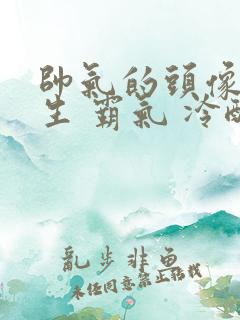 帥氣的頭像
生 霸氣 冷酷
亂步非魚
未經同意禁止轉載